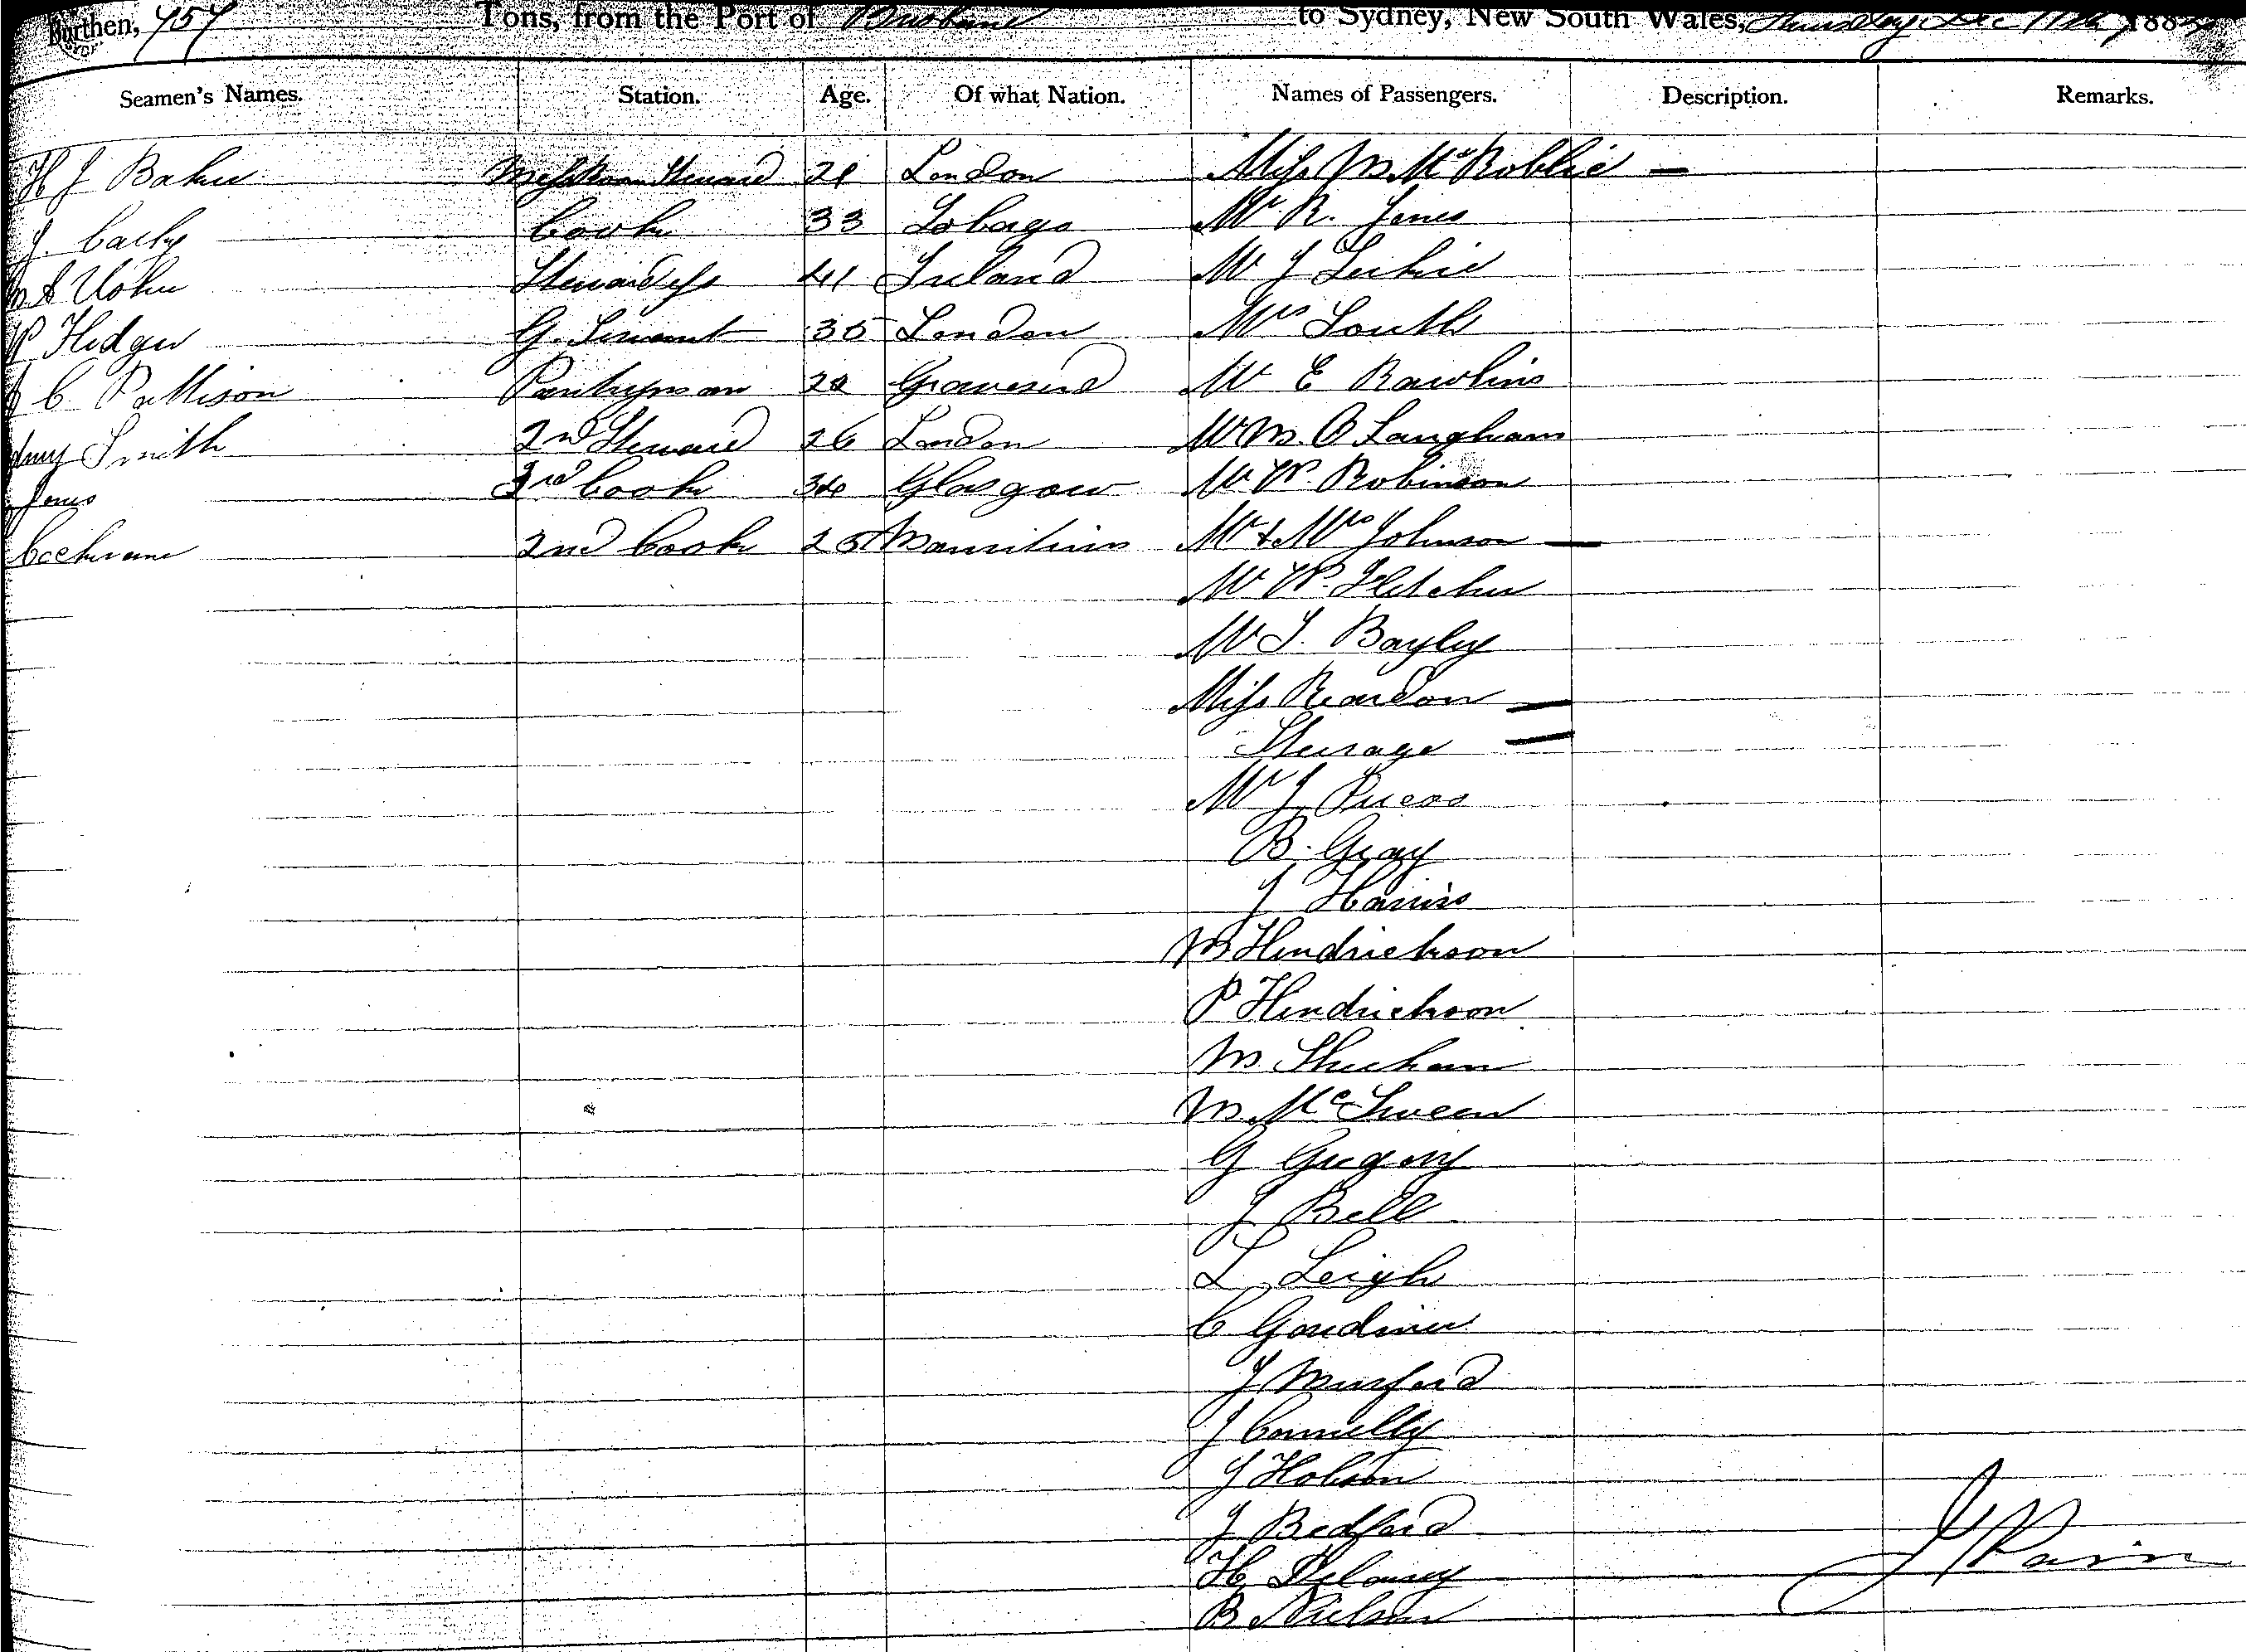 Burthen, 757 Tons, from the Port of Brisbane to Sydney, New South Wales, Thursday Dec 11th 188
Seamen's Names. Station. Age. Of what Nation. Names of Passengers. Description. Remarks.
H J Baker Messroom Steward 21 London Miss M. McRobbie —
J. Cook 33 Tobago Mr R. Jones
Stewardess 41 Ireland Mr J Leckie
W Hedger G. Servant 35 London Mrs South
C. Pattison Pantryman 22 Gravesend Mr E Rawlins
Smith 2nd Steward 26 London Mr M. O Langham
Jones 3rd Cook 34 Glasgow Mr W. Robinson
Cochrane 2nd Cook 25 Mauritius Mr & Mrs Johnson —
Mr W. Fletcher
Mr T. Bayley
Miss Reardon —
Steerage —
Mr J
B. Gray
J Harris
M Hendrickson
P Hendrickson
M. Sheehan
M. McSween
G Gregory
J Bell
L Leigh
C Gardiner
J Munford
J Connelly
J Hobson
J Bedford
H Delaney
B Nielson